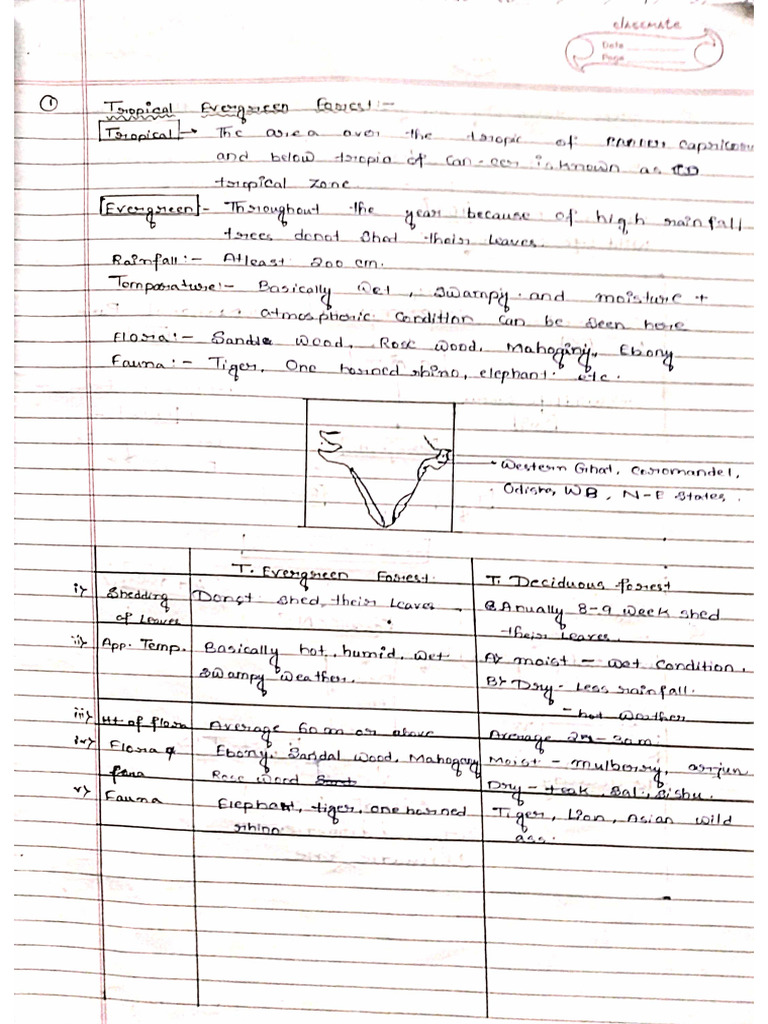 classmate
Date
Page
① Tropical Evergreen Forest:-
Tropical → The area over the tropic of capricorn
and below tropic of Can-cer is known as
tropical zone.
Evergreen - Throughout the year because of high rainfall
trees donot Shed their leaves.
Rainfall:- Atleast 200 cm.
Temporature:- Basically wet, swampy and moisture +
atmospheric condition can be seen here
Flora:- Sandle wood, Rose wood, Mahoginy, Ebony
Fauna:- Tiger, One horned rhino, elephant. etc.
Western Ghat, Coromandel,
Odisha, WB, N-E States.
T. Evergreen Forest. T. Deciduous forest
i) Shedding Donot Shed, their leaves. Anually 8-9 week shed
of leaves their leaves.
ii) App. Temp. Basically hot, humid, wet A) moist - wet condition.
swampy weather. B) Dry - Less rainfall.
- hot weather
iii) Ht of flora Average 60m or above Average
iv) Flora & Ebony, Sandal wood, Mahogany Moist - mulberry, arrjun
fana Rose wood Dry - teak, Sal, Sishu.
v) Fauna Elephant, tiger, one horned Tiger, Lion, Asian wild
rhino. ass.